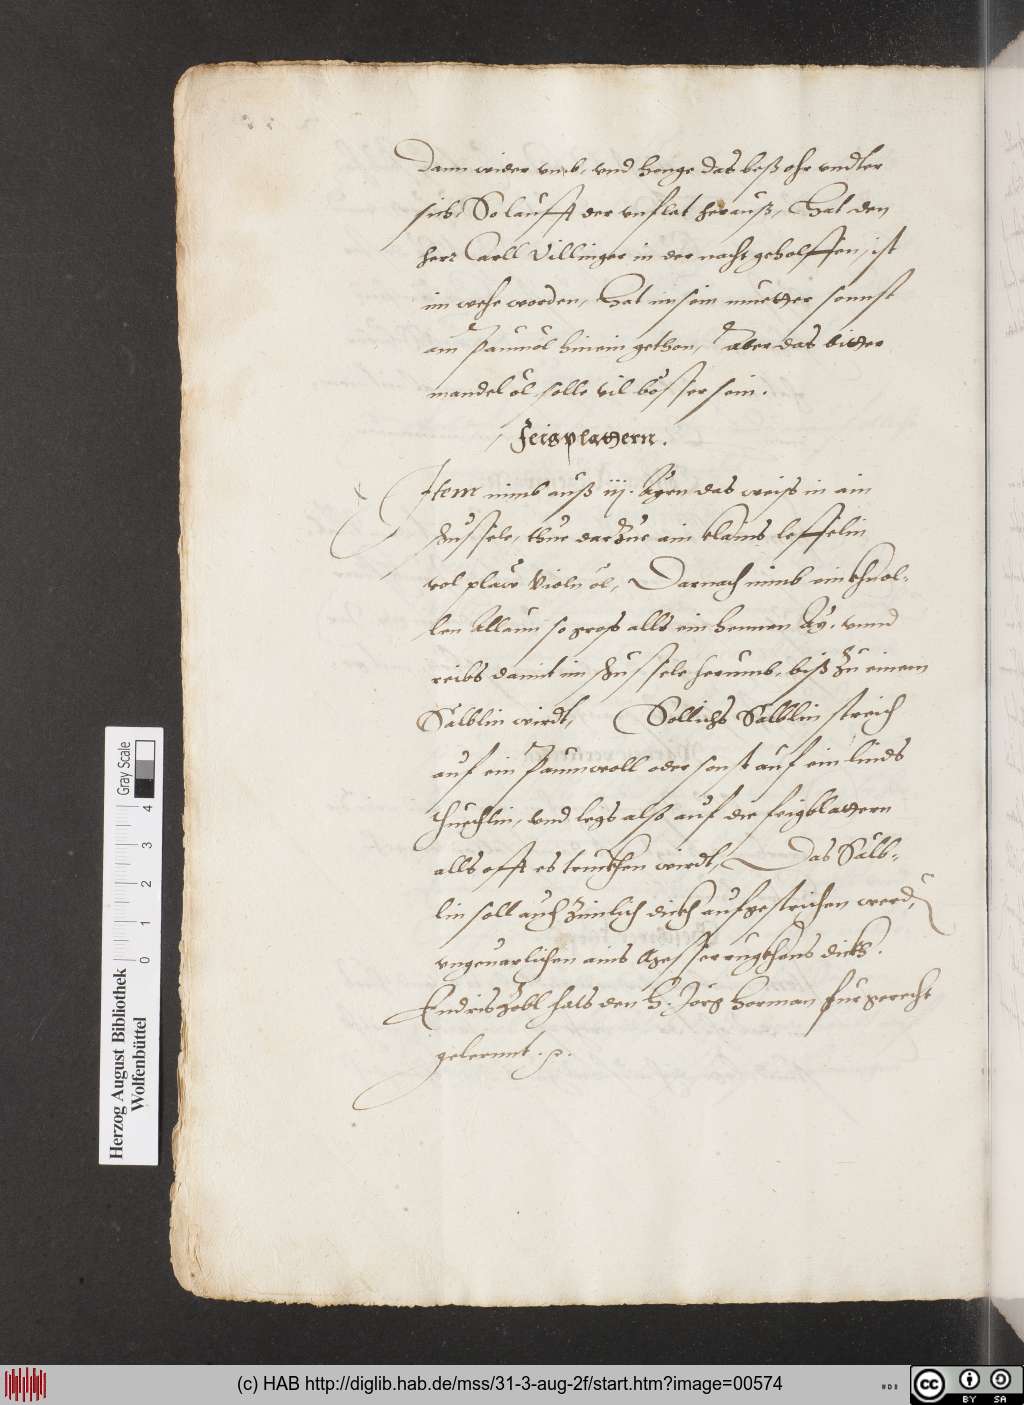 Dann wider vmb, vnd henge das böß ohr vndter
sich, So laufft der vnflat herauß, Hat den
herr Carll Villinger in der nacht geholffen, ist
im wehe worden, Hat im sein muetter sonnst
ain Paumöl hinein gethon, aber das bitter
mandel öl solle vil bösser sein.
Feigplattern.
Item nimb auß iij. Ayrn das weiß in ain
schüssele, thue darzue ain klains leffelin
vol plaw Violn öl, Darnach nimb ein khnol-
len Allaun so gross alls ein hennen Ay, vnnd
reibs damit im schüssele herumb, biß zu einem
Sälblin wirdt, Sollichs Sälblin streich
auf ein Paumwoll oder sonst auf ein linds
thüechlin, vnd legs also auf die feigblattern
alls offt es truckhen wirdt, Das Sälb-
lin soll auch zimlich dickh aufgestrichen werd,
vngeuarlichen ains Messerrugkhens dickh.
Endris Zobl hats den H. Jörg Herman für gerecht
gelernnt.
Herzog August Bibliothek
Wolfenbüttel
0 1 2 3 4
Gray Scale
(c) HAB http://diglib.hab.de/mss/31-3-aug-2f/start.htm?image=00574
cc BY SA